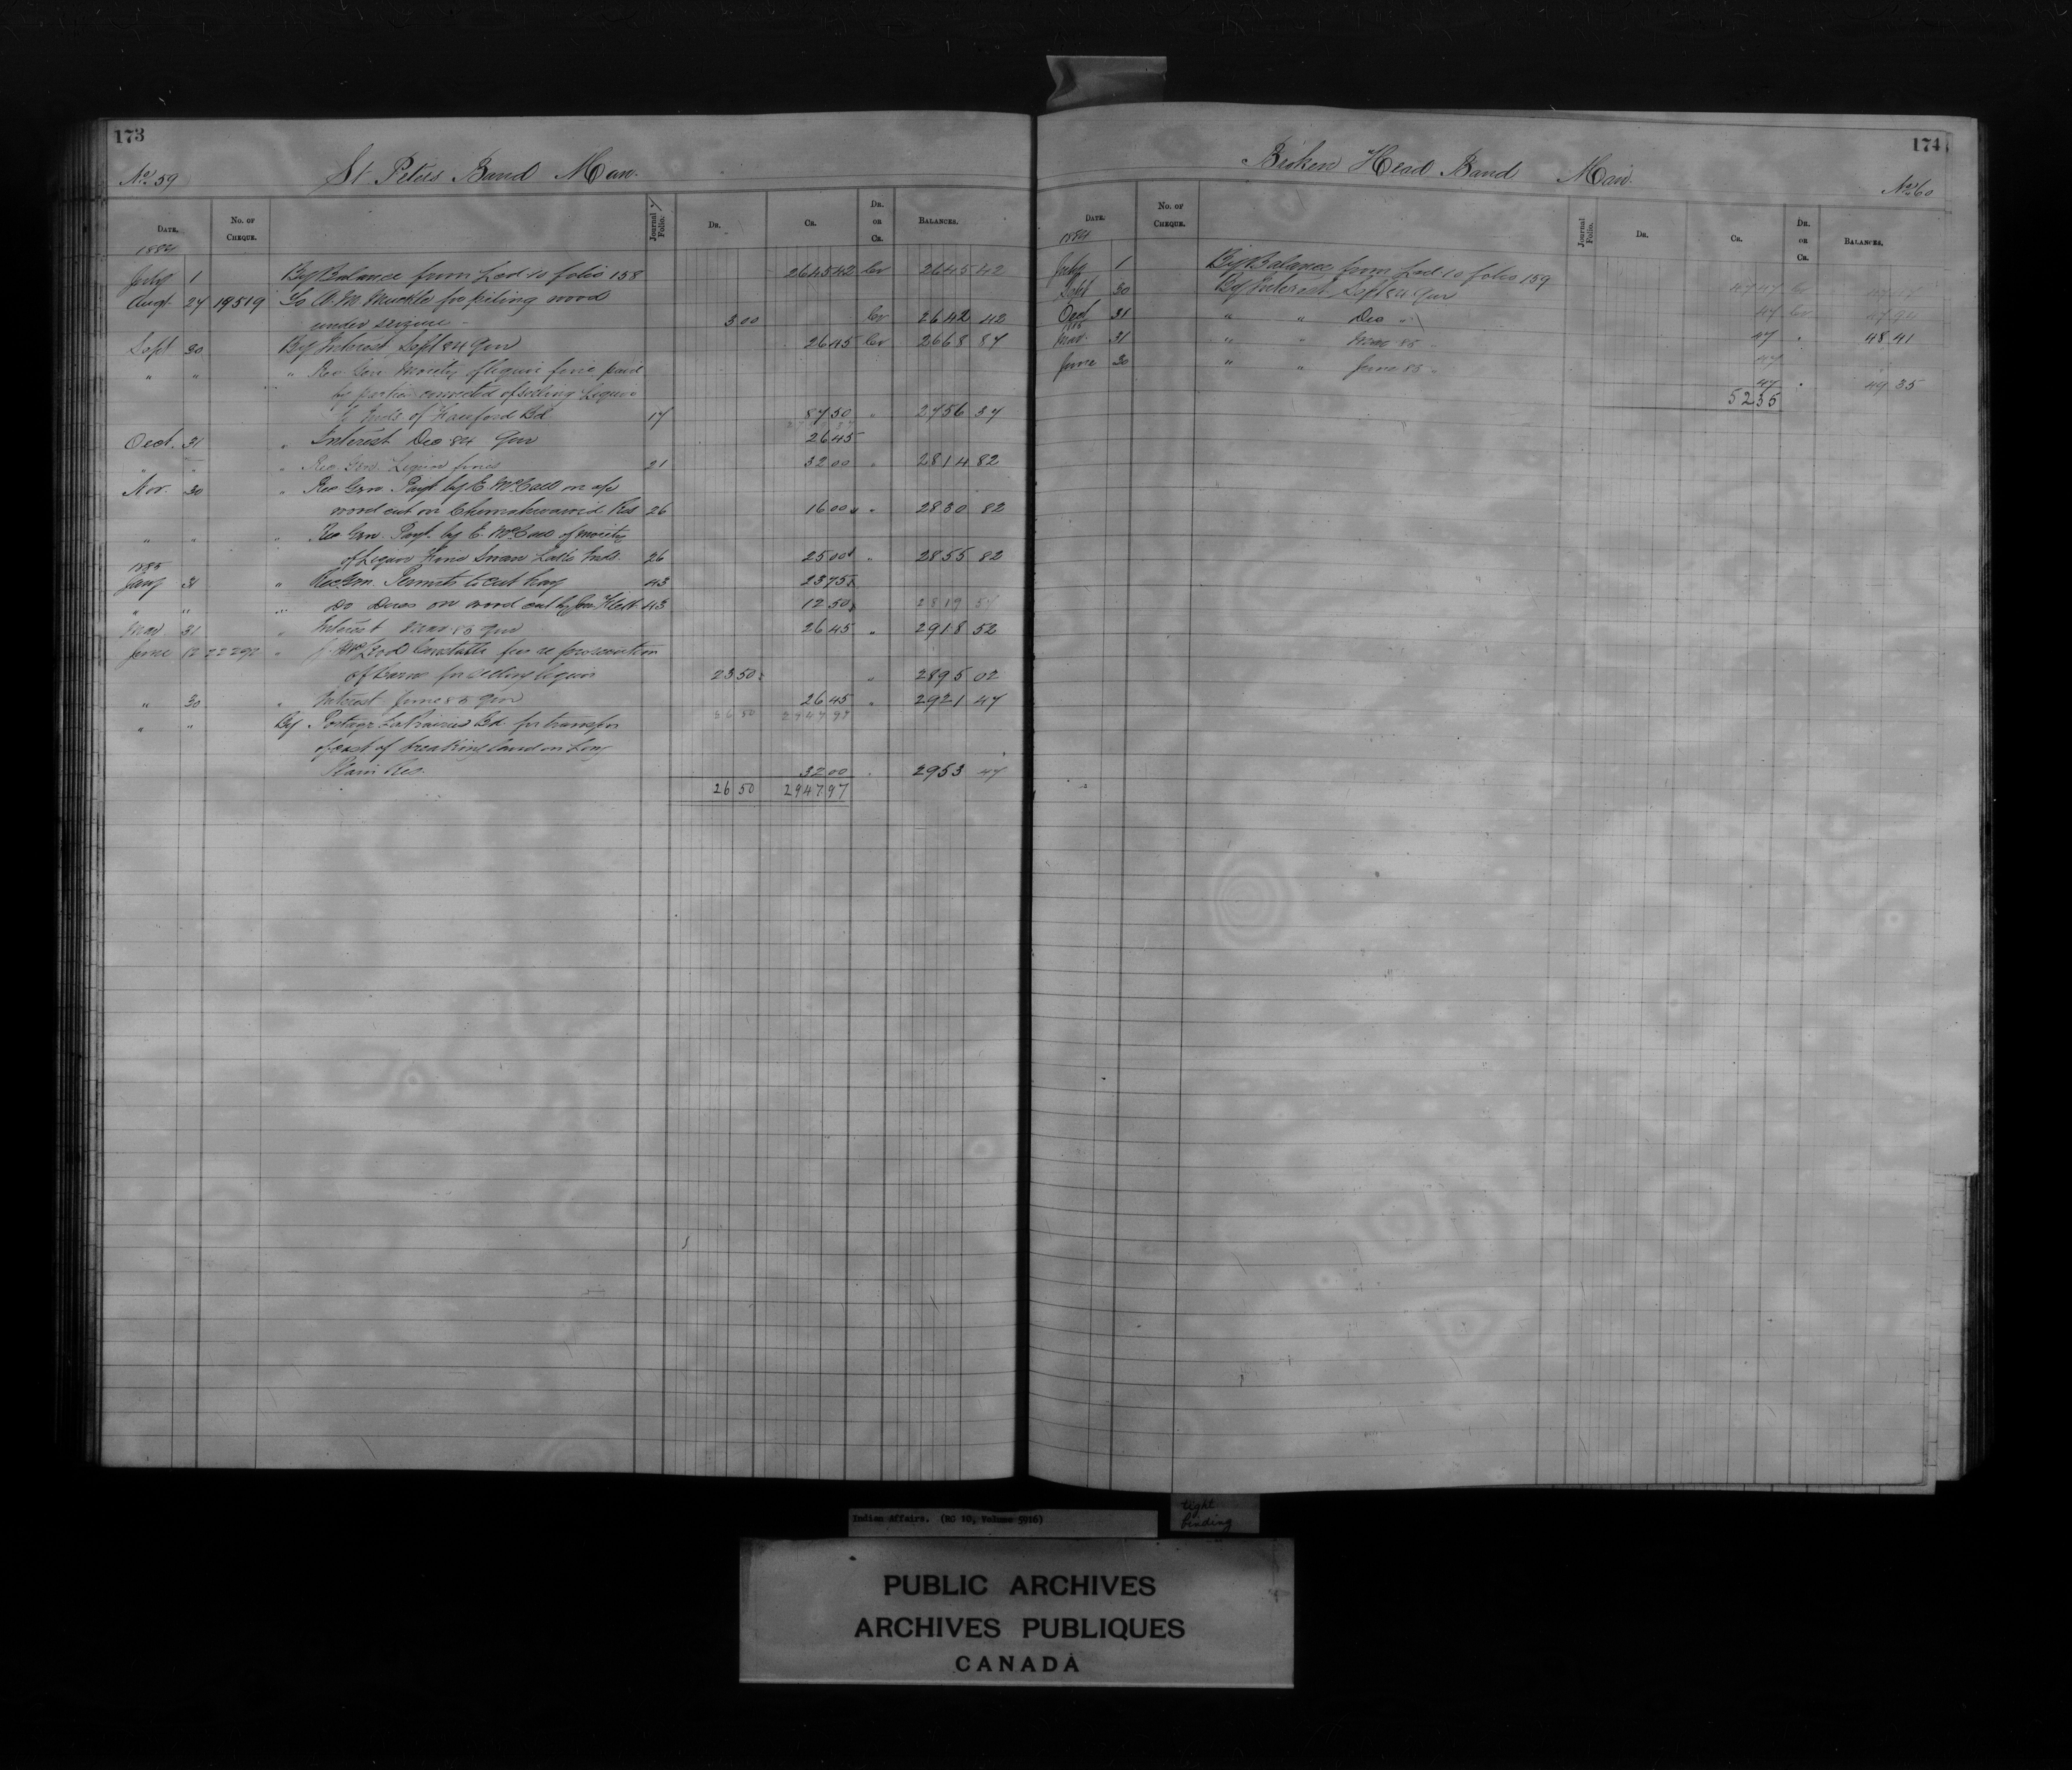 173
No. 59 St. Peters Band Man.
DATE. No. OF CHEQUE. Journal Folio. DR. CR. DR. OR CR. BALANCES.
1884
July 1 By Balance from Led 10 folio 158 2645 42 Cr 2645 42
Augt 27 19519 To A. M. Muckle for piling wood
under seizure - 3 00 Cr 2642 42
Sept 30 By Interest Sept 84 Qur 26 45 Cr 2668 87
" " " Rec Gen Moiety of liquor fine paid
by parties convicted of selling liquor
to Inds of Bd 17 87 50 " 2756 37
Oct. 31 " Interest Dec 84 Qur 26 45
" " " Rec. Gen. Liquor fines 21 32 00 " 2814 82
Nov. 30 " Rec Gen. Payt by E. McColl on a/c
wood cut on Res 26 16 00 " 2830 82
" " " Rec Gen. Payt. by E. McColl of moiety
of Liquor Fine Swan Lake Inds. 26 25 00 " 2855 82
1885
Jany 31 " Rec Gen. Permits to cut hay 43 23 75
" " " Do Dues on wood cut by 43 12 50
Mar 31 " Interest Mar 85 Qur 26 45 " 2918 52
June 12 " Constable for re prosecution
of for selling liquor 23 50 " 2895 02
" 30 " Interest June 85 Qur 26 45 " 2921 47
" " By Portage La Prairie Bd. for transfer
of cost of breaking land on Long
Plain Res. 32 00 " 2953 47
26 50 2947 97
174
Broken Head Band Man.
No. 60
DATE. No. OF CHEQUE. Journal Folio. DR. CR. DR. OR CR. BALANCES.
1884
July 1 By Balance from Led 10 folio 159 47 47 Cr 47 47
Sept 30 By Interest Sept 84 Qur 47 Cr 47 94
Oct 31 " " Dec " 47 " 48 41
1885
Mar. 31 " " Mar 85 " 47
June 30 " " June 85 " 47 " 49 35
52 35
Indian Affairs. (RG 10, Volume 5916)
tight
binding
PUBLIC ARCHIVES
ARCHIVES PUBLIQUES
CANADA